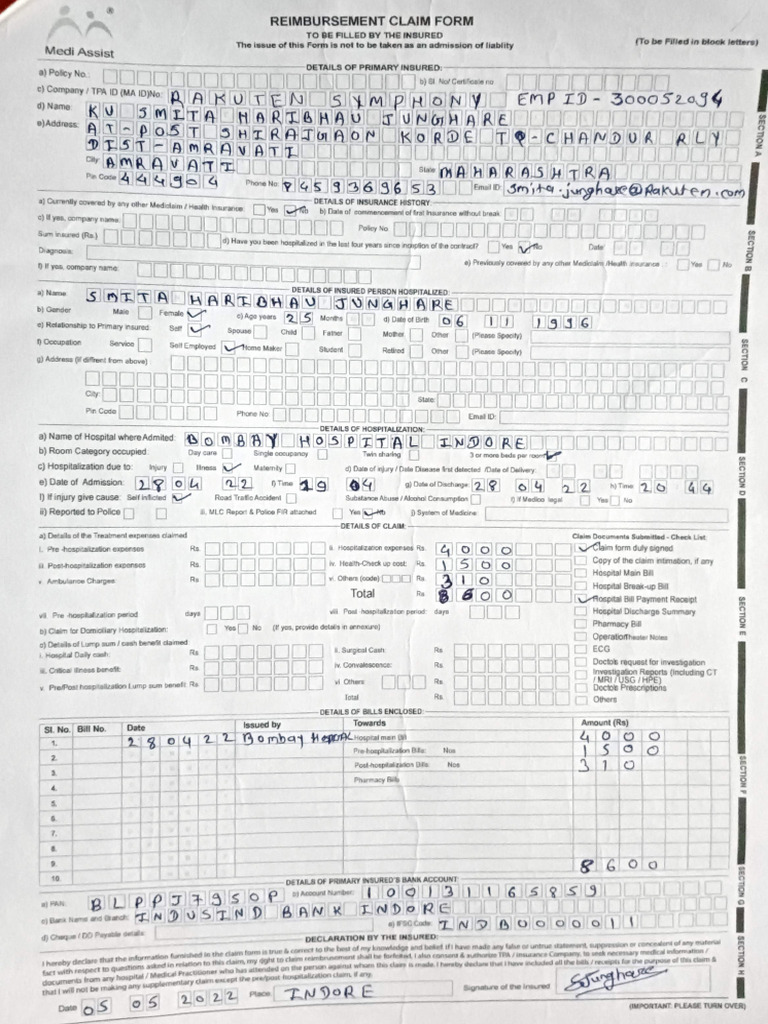 REIMBURSEMENT CLAIM FORM
TO BE FILLED BY THE INSURED
The issue of this Form is not to be taken as an admission of liablity
(To be Filled in block letters)
Medi Assist
DETAILS OF PRIMARY INSURED:
a) Policy No.: b) Sl. No/ Certificate no
c) Company / TPA ID (MA ID)No: RAKUTEN SYMPHONY EMP ID - 300052094
d) Name: KU SMITA HARIBHAU JUNGHARE
e)Address: AT-POST SHIRAJGAON KORDE TQ-CHANDUR RLY
DIST-AMRAVATI
City AMRAVATI State MAHARASHTRA
Pin Code 444904 Phone No: 8459369653 Email ID: smita.junghare@rakuten.com
SECTION A
DETAILS OF INSURANCE HISTORY:
a) Currently covered by any other Mediclaim / Health Insurance: Yes No b) Date of commencement of first Insurance without break:
c) If yes, company name: Policy No.
Sum insured (Rs.) d) Have you been hospitalized in the last four years since inception of the contract? Yes No Date:
Diagnosis: e) Previously covered by any other Mediclaim /Health insurance : Yes No
f) If yes, company name:
SECTION B
DETAILS OF INSURED PERSON HOSPITALIZED:
a) Name: SMITA HARIBHAU JUNGHARE
b) Gender Male Female c) Age years 25 Months d) Date of Birth 06 11 1996
e) Relationship to Primary insured: Self Spouse Child Father Mother Other (Please Specify)
f) Occupation Service Self Employed Home Maker Student Retired Other (Please Specify)
g) Address (if diffrent from above) :
City: State:
Pin Code Phone No: Email ID:
SECTION C
DETAILS OF HOSPITALIZATION:
a) Name of Hospital where Admited: BOMBAY HOSPITAL INDORE
b) Room Category occupied: Day care Single occupancy Twin sharing 3 or more beds per room
c) Hospitalization due to: Injury Illness Maternity d) Date of injury / Date Disease first detected /Date of Delivery:
e) Date of Admission: 28 04 22 f) Time 19 04 g) Date of Discharge: 28 04 22 h) Time: 20 44
i) If injury give cause: Self inflicted Road Traffic Accident Substance Abuse / Alcohol Consumption i) If Medico legal Yes No
ii) Reported to Police iii. MLC Report & Police FIR attached Yes No j) System of Medicine:
SECTION D
DETAILS OF CLAIM:
a) Details of the Treatment expenses claimed Claim Documents Submitted - Check List:
i. Pre -hospitalization expenses Rs. ii. Hospitalization expenses Rs. 4000 Claim form duly signed
iii. Post-hospitalization expenses Rs. iv. Health-Check up cost: Rs. 1500 Copy of the claim intimation, if any
v. Ambulance Charges: Rs. vi. Others (code): Rs. 310 Hospital Main Bill
Total Rs. 8600 Hospital Break-up Bill
Hospital Bill Payment Receipt
vii. Pre -hospitalization period: days viii. Post -hospitalization period: days Hospital Discharge Summary
b) Claim for Domiciliary Hospitalization: Yes No (If yes, provide details in annexure) Pharmacy Bill
c) Details of Lump sum / cash benefit claimed: Operation Theater Notes
i. Hospital Daily cash: Rs. ii. Surgical Cash: Rs. ECG
iii. Critical Illness benefit: Rs. iv. Convalescence: Rs. Doctor's request for investigation
v. Pre/Post hospitalization Lump sum benefit: Rs. vi. Others: Rs. Investigation Reports (Including CT / MRI / USG / HPE)
Total Rs. Doctor's Prescriptions
Others
SECTION E
DETAILS OF BILLS ENCLOSED:
Sl. No. Bill No. Date Issued by Towards Amount (Rs)
1. 280422 Bombay Hospital Hospital main Bill 4000
2. Pre-hospitalization Bills: Nos 1500
3. Post-hospitalization Bills: Nos 310
4. Pharmacy Bills
5.
6.
7.
8.
9. 8600
10.
SECTION F
DETAILS OF PRIMARY INSURED'S BANK ACCOUNT:
a) PAN: BLPPJ7950P b) Account Number: 100131165859
c) Bank Name and Branch: INDUSIND BANK INDORE
d) Cheque / DD Payable details: e) IFSC Code: INDB0000011
SECTION G
DECLARATION BY THE INSURED:
I hereby declare that the information furnished in the claim form is true & correct to the best of my knowledge and belief. If I have made any false or untrue statement, suppression or concealment of any material
fact with respect to questions asked in relation to this claim, my right to claim reimbursement shall be forfeited. I also consent & authorize TPA / insurance Company, to seek necessary medical information /
documents from any hospital / Medical Practitioner who has attended on the person against whom this claim is made. I hereby declare that I have included all the bills / receipts for the purpose of this claim &
that I will not be making any supplementary claim except the pre/post hospitalization claim, if any.
Date 05 05 2022 Place: INDORE Signature of the Insured SJunghare
SECTION H
(IMPORTANT: PLEASE TURN OVER)